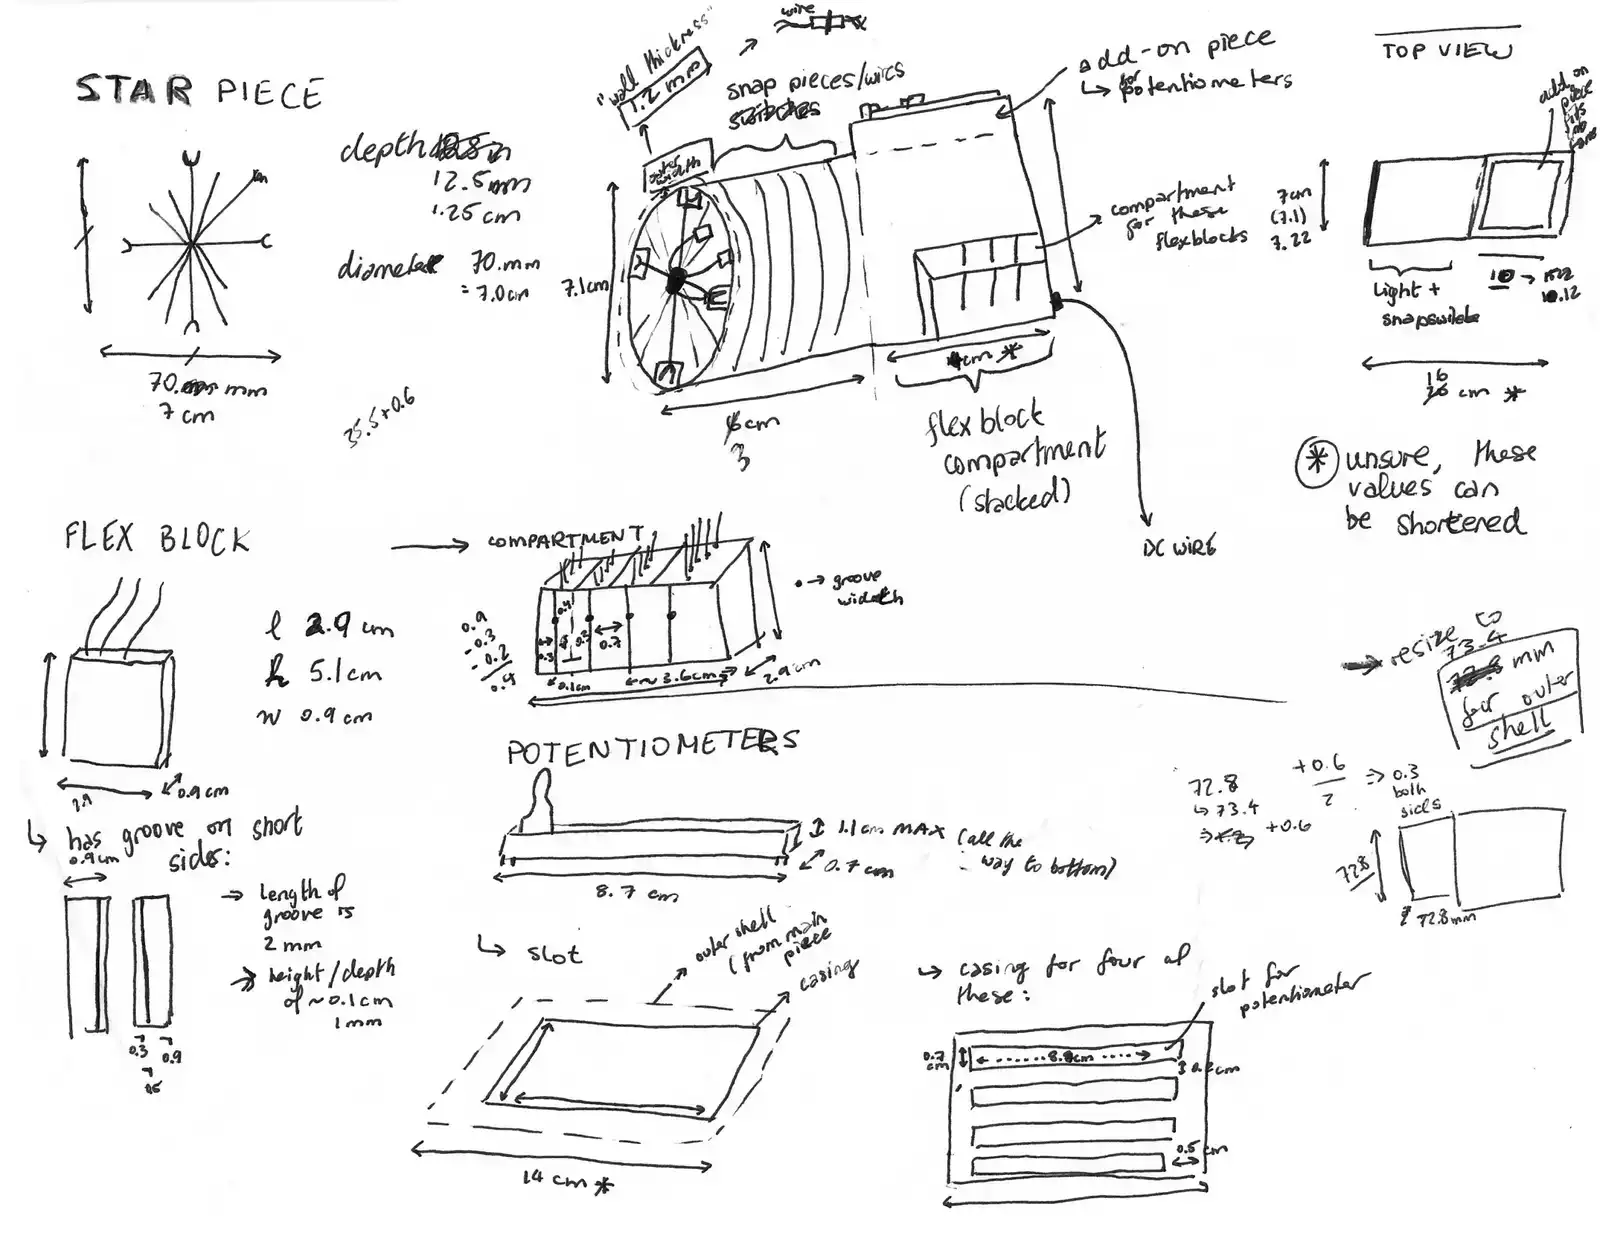 STAR PIECE
depth
12.5 mm
1.25 cm
diameter 70.mm
= 7.0cm
70. mm
7 cm
35.5+0.6
"wall thickness"
1.2 mm
wire
snap pieces/wires
switches
outer
width
7.1cm
6cm
3
add-on piece
↳ for potentiometers
compartment
for these
flexblocks
4cm *
flex block
compartment
(stacked)
DC WIRE
TOP VIEW
add on
piece
fits
7cm
(7.1)
7.22
light +
snapswitch
10 →
10.12
16
cm *
* unsure, these
values can
be shortened
FLEX BLOCK
→ COMPARTMENT
l 2.9 cm
h 5.1cm
w 0.9 cm
2.9
0.9cm
↳ has groove on short
sides:
0.9cm
→ length of
groove is
2 mm
→ height/depth
of ~0.1cm
1mm
0.3
0.9
0.9
-0.3
-0.2
0.4
0.4
0.3
0.2
0.7
0.1cm
~3.6cm
2.9cm
• → groove
width
POTENTIOMETERS
1.1cm MAX (all the
way to bottom)
0.7cm
8.7 cm
↳ slot
outer shell
(from main
piece
casing
14 cm *
↳ casing for four of
these:
slot for
potentiometer
0.7
cm
8.8cm
0.5 cm
→ resize to
73.4
mm
for outer
shell
72.8
↳ 73.4
⇒ +0.6
+0.6
2
⇒ 0.3
both
sides
72.8
72.8mm